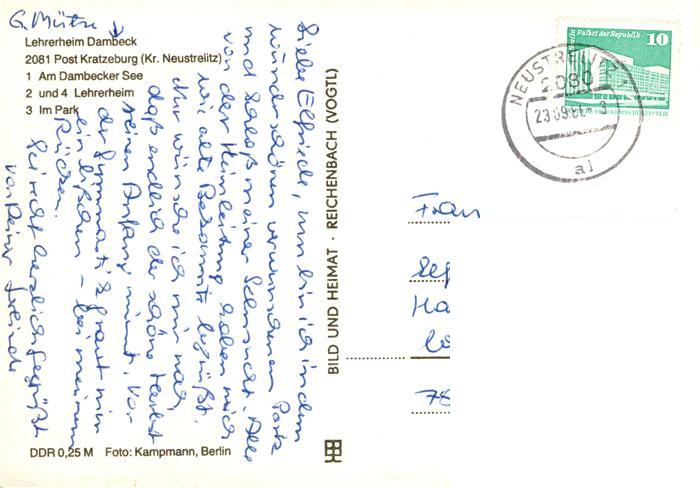 G. Mütze
Lehrerheim Dambeck
2081 Post Kratzeburg (Kr. Neustrelitz)
1 Am Dambecker See
2 und 4 Lehrerheim
3 Im Park
Liebe Elfriede, nun bin ich in dem
wunderschönen verwunschenem Park
und Schloß meiner Sehnsucht. Alle
von der Heimleitung haben mich
wie alte Bekannte begrüßt.
Nur wünsche ich mir nur,
daß endlich der schöne Herbst
seinen Anfang nimmt. Vor
der Gymnastik graut mir
ein bißchen – bei meinem
Rücken.
Sei recht herzlich gegrüßt
von Deiner
DDR 0,25 M Foto: Kampmann, Berlin
BILD UND HEIMAT · REICHENBACH (VOGTL)
Berlin Palast der Republik
10
DEUTSCHE DEMOKRATISCHE REPUBLIK
NEUSTRELITZ 1
2080
23.09.
ai
Frau
Ha
78